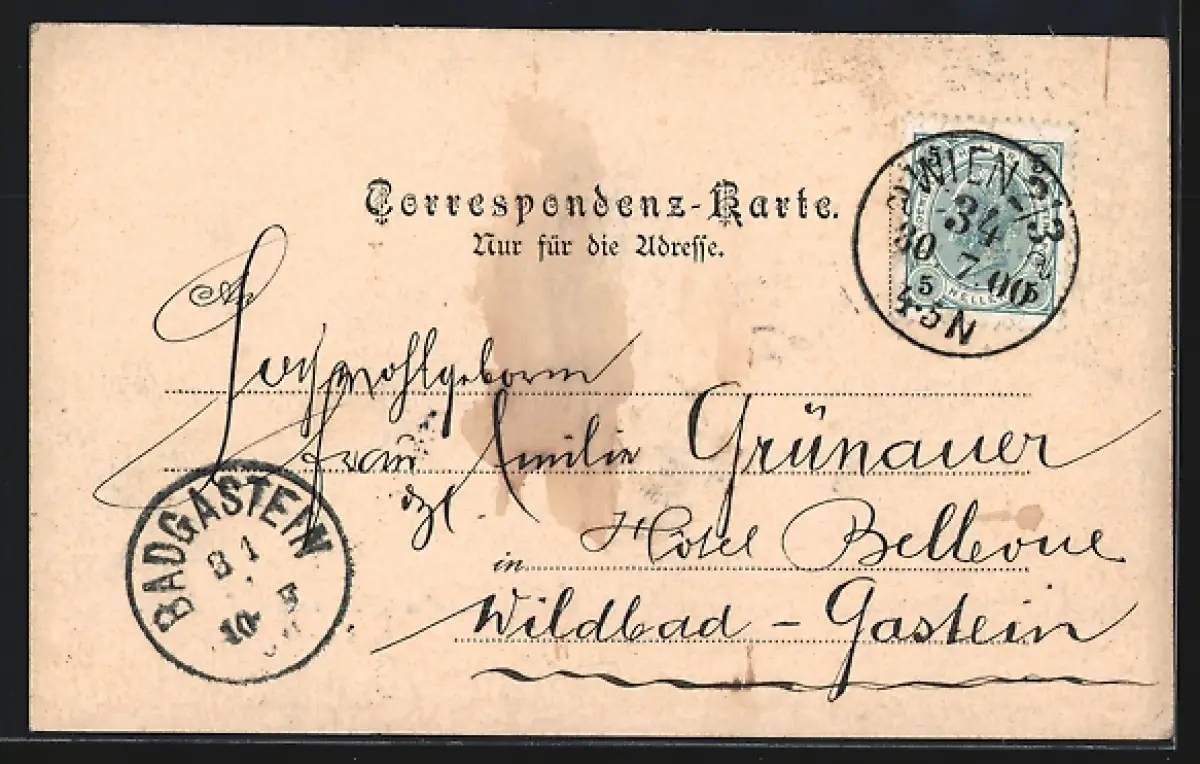 Correspondenz-Karte.
Nur für die Adresse.
WIEN 2/3
34
30 7.00
4-5N
5 HELLER 5
Hochwohlgeborn
Frau Emilie Grünauer
dzt. Hôtel Bellevue
in
Wildbad - Gastein
BADGASTEIN
31
10